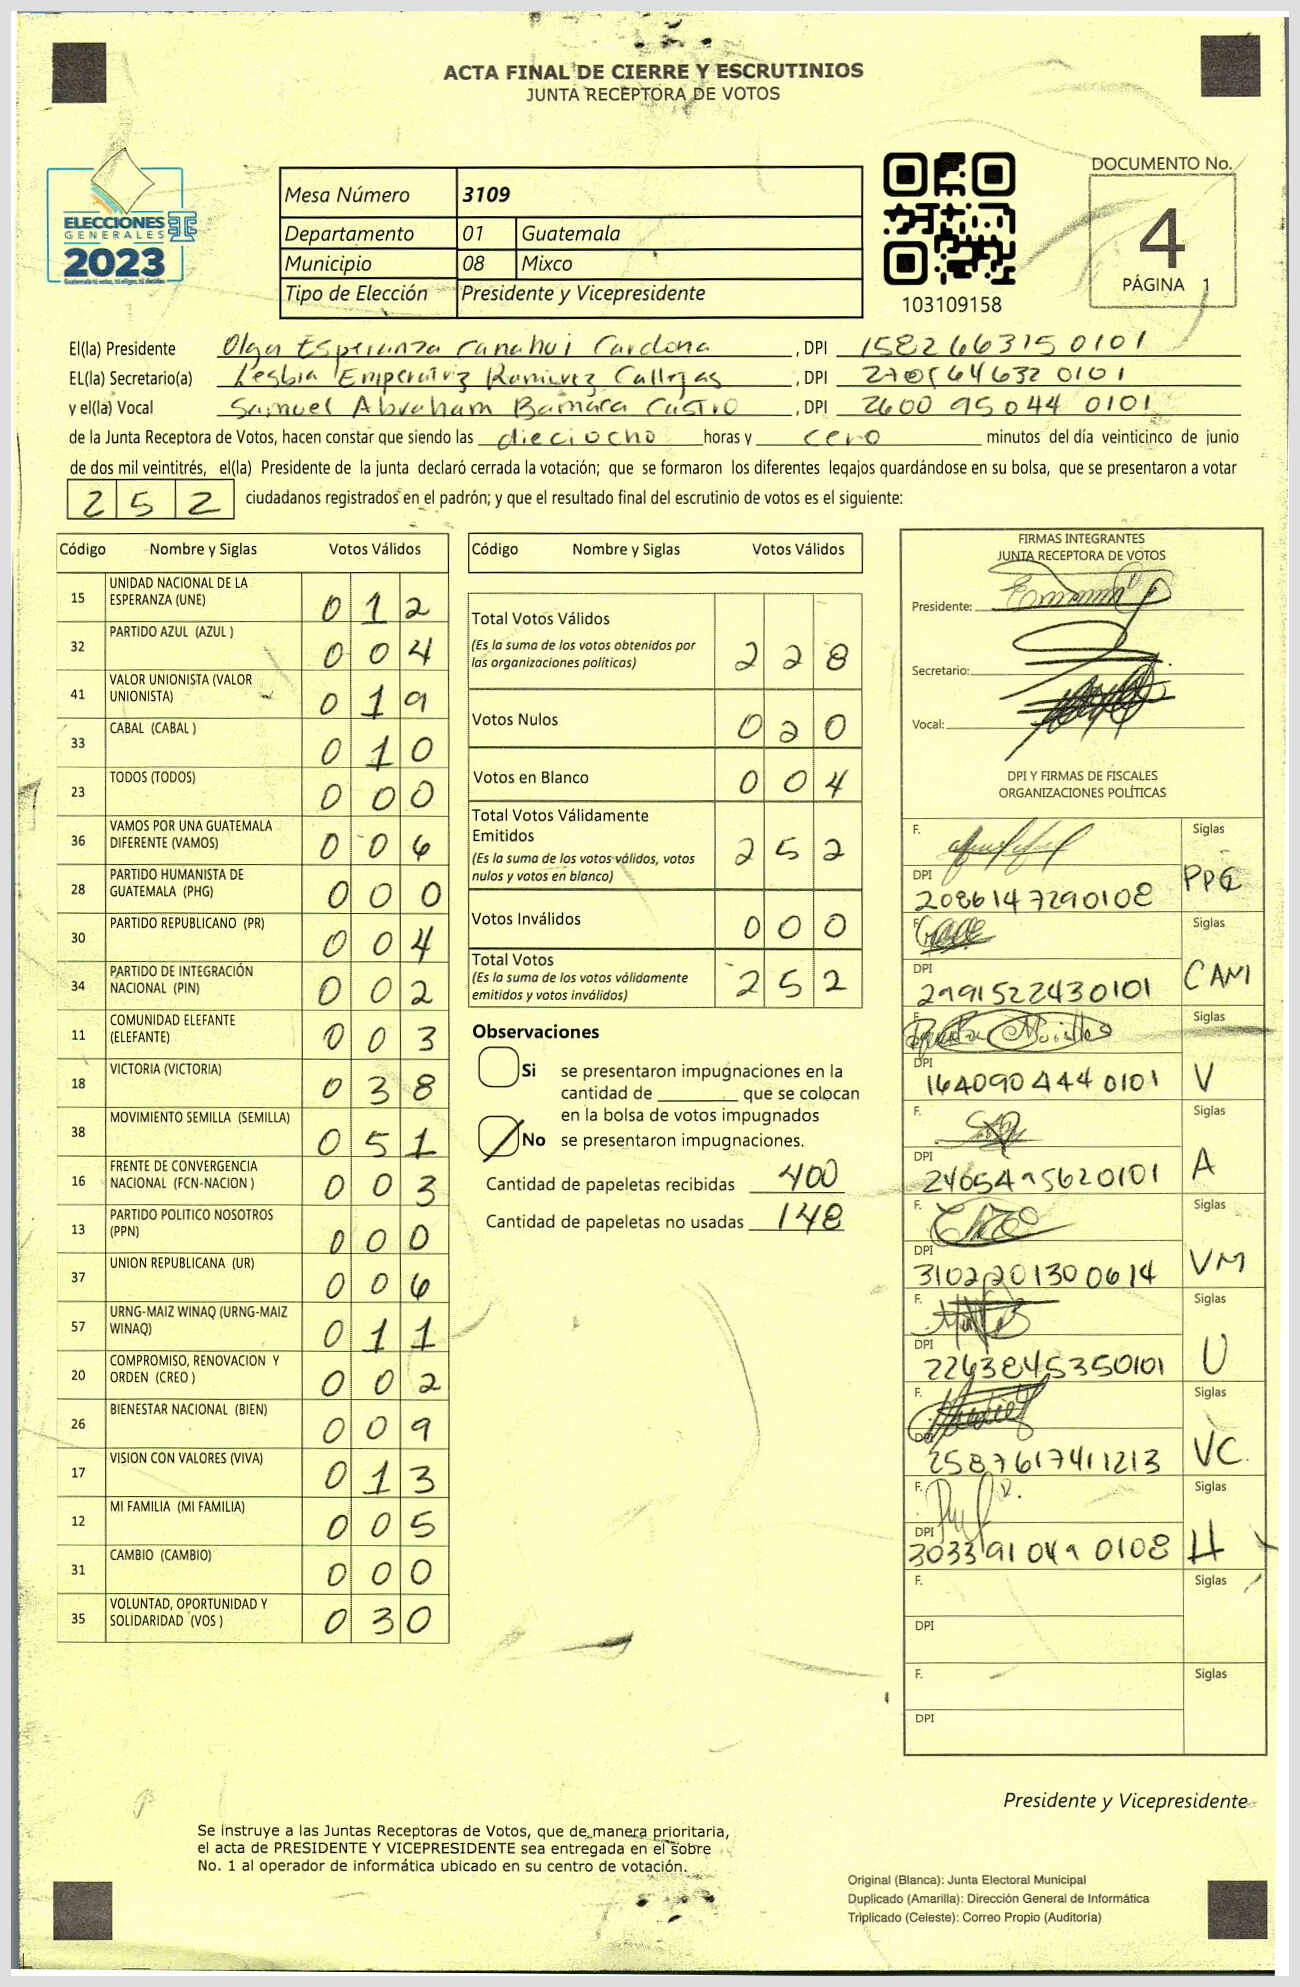 ACTA FINAL DE CIERRE Y ESCRUTINIOS
JUNTA RECEPTORA DE VOTOS
ELECCIONES
GENERALES
2023
Mesa Número 3109
Departamento 01 Guatemala
Municipio 08 Mixco
Tipo de Elección Presidente y Vicepresidente
103109158
DOCUMENTO No.
4
PÁGINA 1
El(la) Presidente Olga Esperanza Canahui Cardona , DPI 1582663150101
EL(la) Secretario(a) Lesbia Emperatriz Ramirez Callejas , DPI
y el(la) Vocal Samuel Abraham Bamara Castro , DPI 2600 95044 0101
de la Junta Receptora de Votos, hacen constar que siendo las dieciocho horas y cero minutos del día veinticinco de junio
de dos mil veintitrés, el(la) Presidente de la junta declaró cerrada la votación; que se formaron los diferentes legajos guardándose en su bolsa, que se presentaron a votar
252 ciudadanos registrados en el padrón; y que el resultado final del escrutinio de votos es el siguiente:
Código Nombre y Siglas Votos Válidos
15 UNIDAD NACIONAL DE LA ESPERANZA (UNE) 012
32 PARTIDO AZUL (AZUL ) 004
41 VALOR UNIONISTA (VALOR UNIONISTA) 019
33 CABAL (CABAL ) 010
23 TODOS (TODOS) 000
36 VAMOS POR UNA GUATEMALA DIFERENTE (VAMOS) 006
28 PARTIDO HUMANISTA DE GUATEMALA (PHG) 000
30 PARTIDO REPUBLICANO (PR) 004
34 PARTIDO DE INTEGRACIÓN NACIONAL (PIN) 002
11 COMUNIDAD ELEFANTE (ELEFANTE) 003
18 VICTORIA (VICTORIA) 038
38 MOVIMIENTO SEMILLA (SEMILLA) 051
16 FRENTE DE CONVERGENCIA NACIONAL (FCN-NACION ) 003
13 PARTIDO POLITICO NOSOTROS (PPN) 000
37 UNION REPUBLICANA (UR) 006
57 URNG-MAIZ WINAQ (URNG-MAIZ WINAQ) 011
20 COMPROMISO, RENOVACION Y ORDEN (CREO ) 002
26 BIENESTAR NACIONAL (BIEN) 009
17 VISION CON VALORES (VIVA) 013
12 MI FAMILIA (MI FAMILIA) 005
31 CAMBIO (CAMBIO) 000
35 VOLUNTAD, OPORTUNIDAD Y SOLIDARIDAD (VOS ) 030
Código Nombre y Siglas Votos Válidos
Total Votos Válidos 228
(Es la suma de los votos obtenidos por
las organizaciones políticas)
Votos Nulos 020
Votos en Blanco 004
Total Votos Válidamente
Emitidos 252
(Es la suma de los votos válidos, votos
nulos y votos en blanco)
Votos Inválidos 000
Total Votos 252
(Es la suma de los votos válidamente
emitidos y votos inválidos)
Observaciones
Si se presentaron impugnaciones en la
cantidad de ________ que se colocan
en la bolsa de votos impugnados
No se presentaron impugnaciones.
Cantidad de papeletas recibidas 400
Cantidad de papeletas no usadas 148
FIRMAS INTEGRANTES
JUNTA RECEPTORA DE VOTOS
Presidente:
Secretario:
Vocal:
DPI Y FIRMAS DE FISCALES
ORGANIZACIONES POLÍTICAS
F. Siglas
DPI 2086147290108 PPG
F. Siglas
DPI 2991522430101 CAM
F. Siglas
DPI 1640904440101 V
F. Siglas
DPI 2465495620101 A
F. Siglas
DPI 3102201300614 VM
F. Siglas
DPI 2263845350101 U
F. Siglas
DPI 2587617411213 VC.
F. Siglas
DPI 3033910490108 H
F. Siglas
DPI
F. Siglas
DPI
Presidente y Vicepresidente
Se instruye a las Juntas Receptoras de Votos, que de manera prioritaria,
el acta de PRESIDENTE Y VICEPRESIDENTE sea entregada en el sobre
No. 1 al operador de informática ubicado en su centro de votación.
Original (Blanca): Junta Electoral Municipal
Duplicado (Amarilla): Dirección General de Informática
Triplicado (Celeste): Correo Propio (Auditoría)